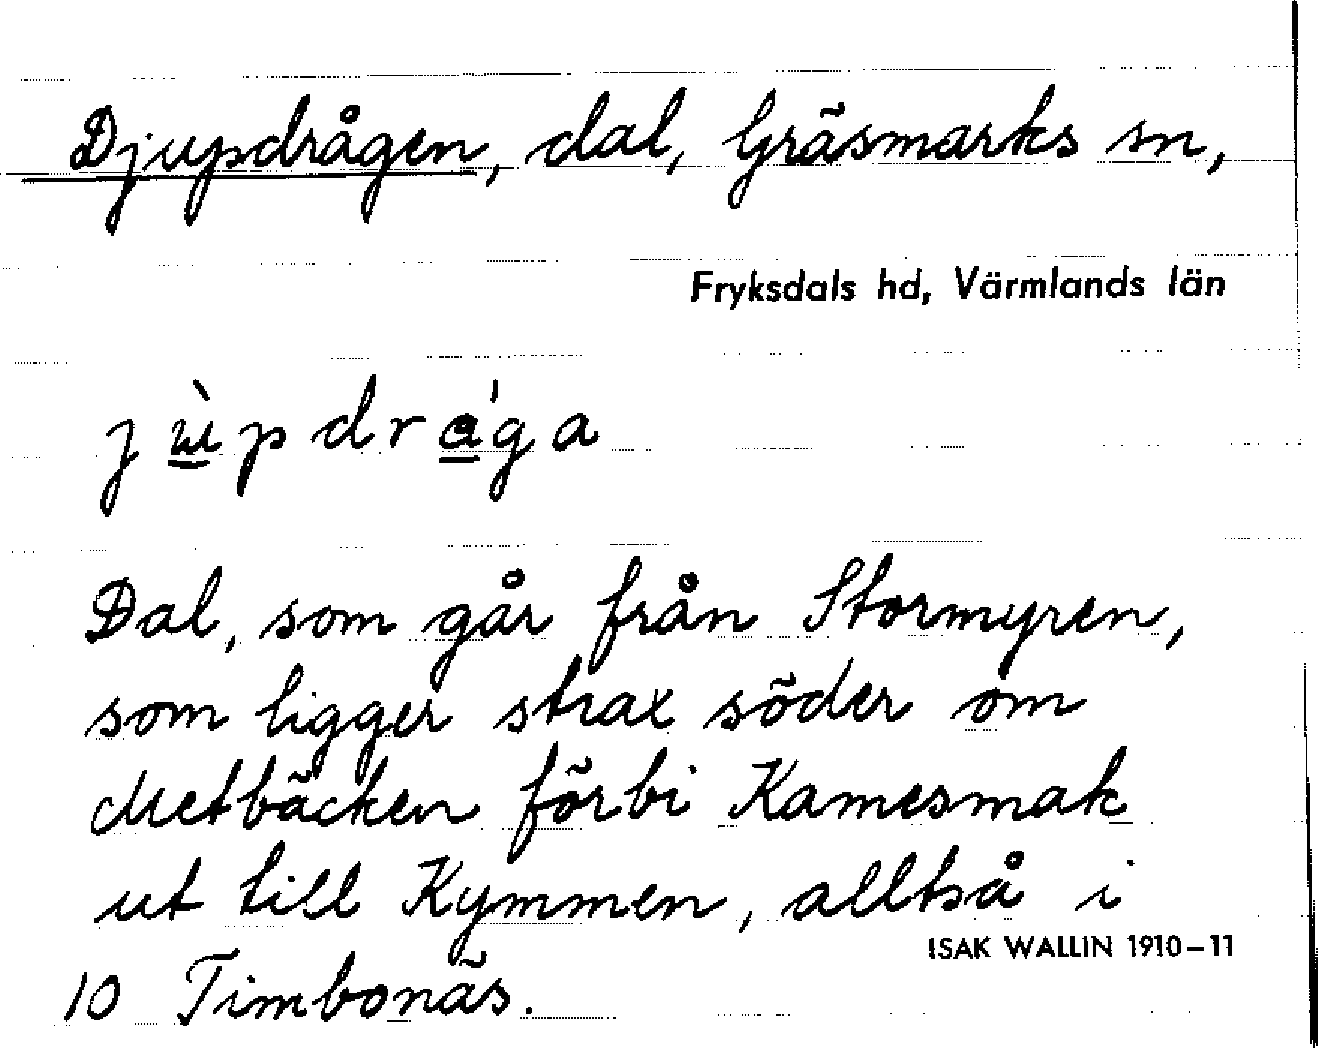 Djupdrågen, dal, Gräsmarks sn,
Fryksdals hd, Värmlands län
jùpdrága
Dal, som går från Stormyren,
som ligger strax söder om
Metbäcken förbi Kamesmak
ut till Kymmen, alltså i
ISAK WALLIN 1910–11
10 Timbonäs.